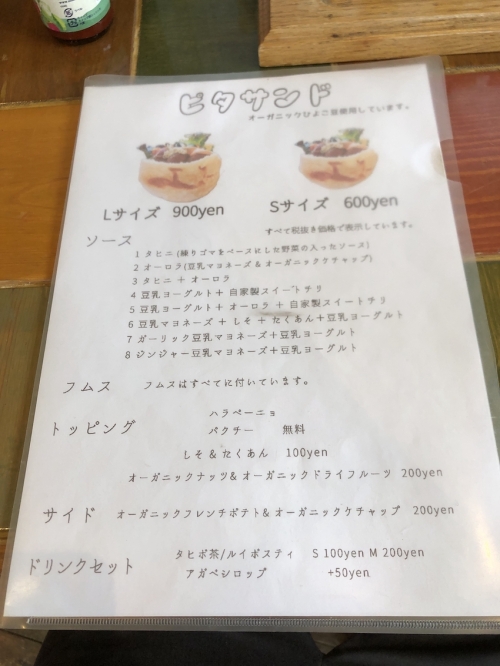 ピタサンド
オーガニックひよこ豆使用しています。
Lサイズ 900yen
Sサイズ 600yen
すべて税抜き価格で表示しています。
ソース
1 タヒニ (練りゴマをベースにした野菜の入ったソース)
2 オーロラ(豆乳マヨネーズ & オーガニックケチャップ)
3 タヒニ + オーロラ
4 豆乳ヨーグルト+ 自家製スイートチリ
5 豆乳ヨーグルト+ オーロラ + 自家製スイートチリ
6 豆乳マヨネーズ + しそ + たくあん+豆乳ヨーグルト
7 ガーリック豆乳マヨネーズ+豆乳ヨーグルト
8 ジンジャー豆乳マヨネーズ+豆乳ヨーグルト
フムス フムスはすべてに付いています。
ハラペーニョ
トッピング
パクチー 無料
しそ & たくあん 100yen
オーガニックナッツ& オーガニックドライフルーツ 200yen
サイド オーガニックフレンチポテト& オーガニックケチャップ 200yen
ドリンクセット
タヒボ茶/ルイボスティ S 100yen M 200yen
アガベシロップ +50yen